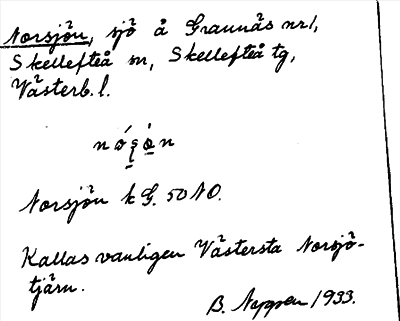 Norsjön, sjö å Grannäs nr 1,
Skellefteå sn, Skellefteå tg,
Västerb. l.
Norsjön k G. 50 NO.
Kallas vanligen Västersta Norsjö-
tjärn.
B. 1933.